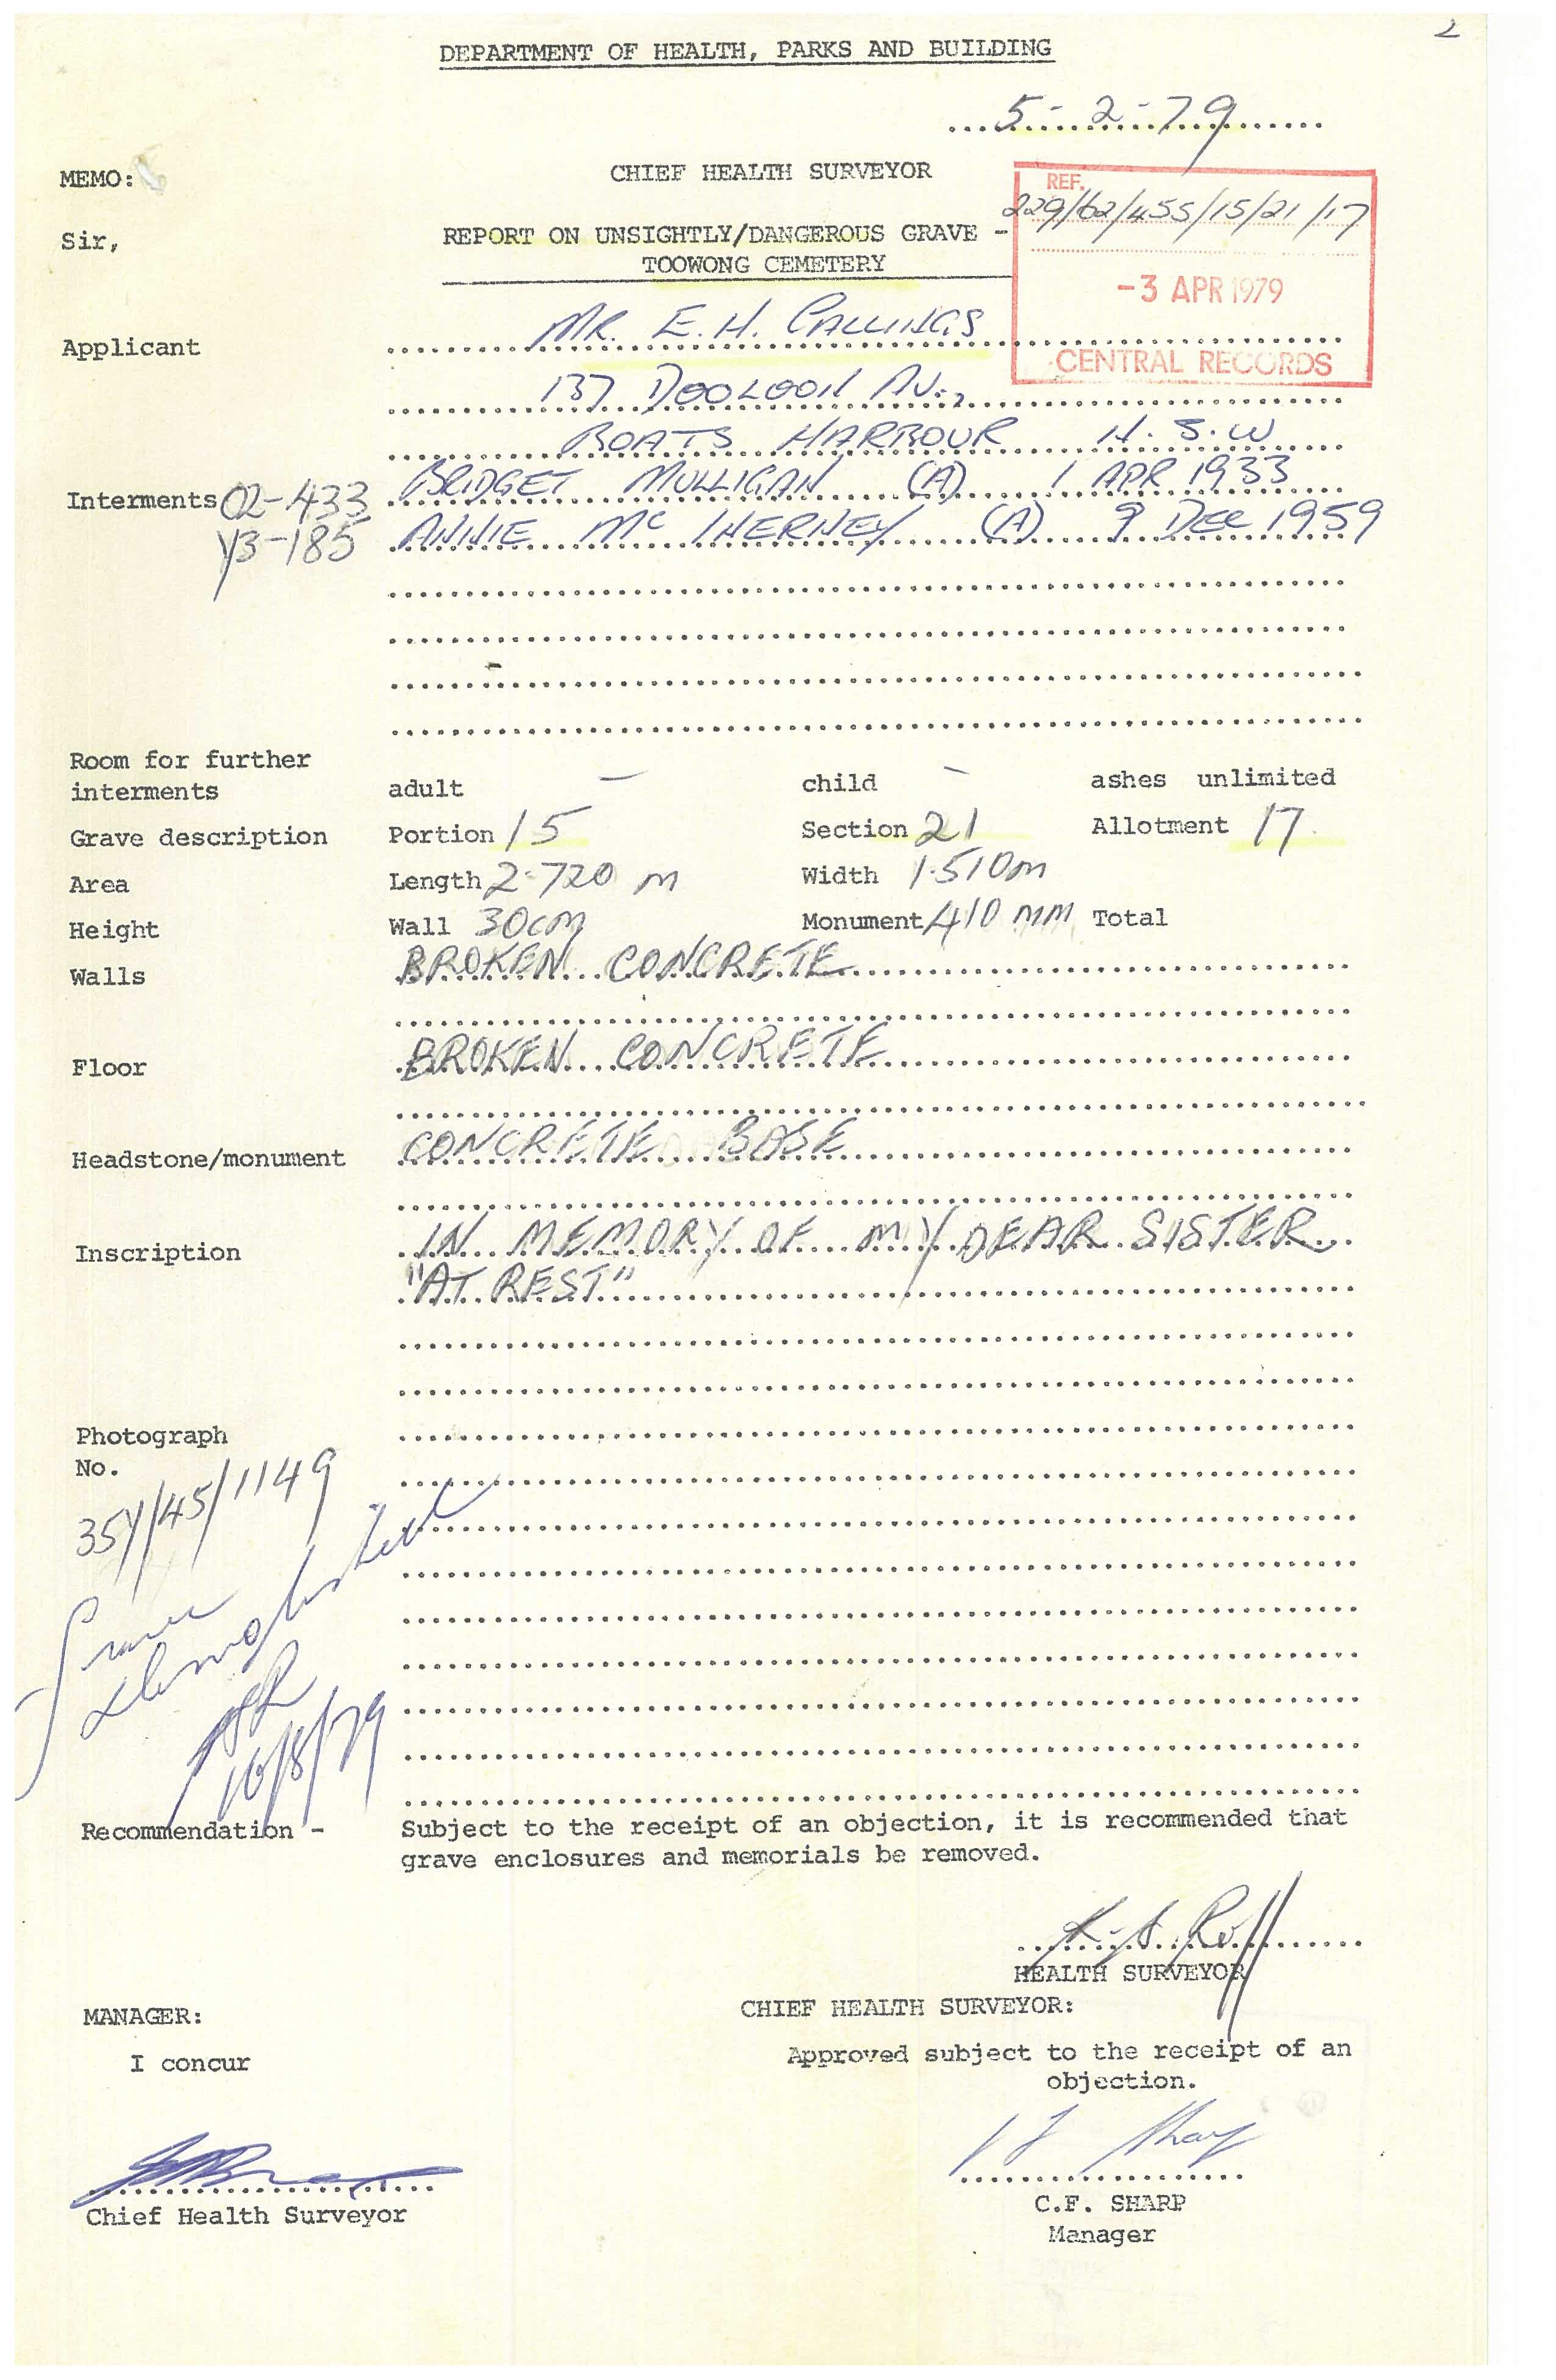 2
DEPARTMENT OF HEALTH, PARKS AND BUILDING
5-2-79
MEMO:
CHIEF HEALTH SURVEYOR
REF.
229/62/455/15/21/17
Sir,
REPORT ON UNSIGHTLY/DANGEROUS GRAVE -
TOOWONG CEMETERY
-3 APR 1979
CENTRAL RECORDS
Applicant MR. E.H.
137 DOOLOON AV.,
BOATS HARBOUR N.S.W
Interments 02-433 BRIDGET MULLIGAN (A) 1 APR 1933
Y3-185 ANNIE Mc INERNEY (A) 9 DEC 1959
Room for further
interments adult - child - ashes unlimited
Grave description Portion 15 Section 21 Allotment 17
Area Length 2.720 m Width 1.510m
Height Wall 30cm Monument 410 mm Total
Walls BROKEN CONCRETE
Floor BROKEN CONCRETE
Headstone/monument CONCRETE BASE
Inscription IN MEMORY OF MY DEAR SISTER
"AT REST"
Photograph
No.
35Y/45/1149
Grave
demolished
16/8/79
Recommendation - Subject to the receipt of an objection, it is recommended that
grave enclosures and memorials be removed.
HEALTH SURVEYOR
MANAGER:
CHIEF HEALTH SURVEYOR:
I concur
Approved subject to the receipt of an
objection.
Chief Health Surveyor
C.F. SHARP
Manager